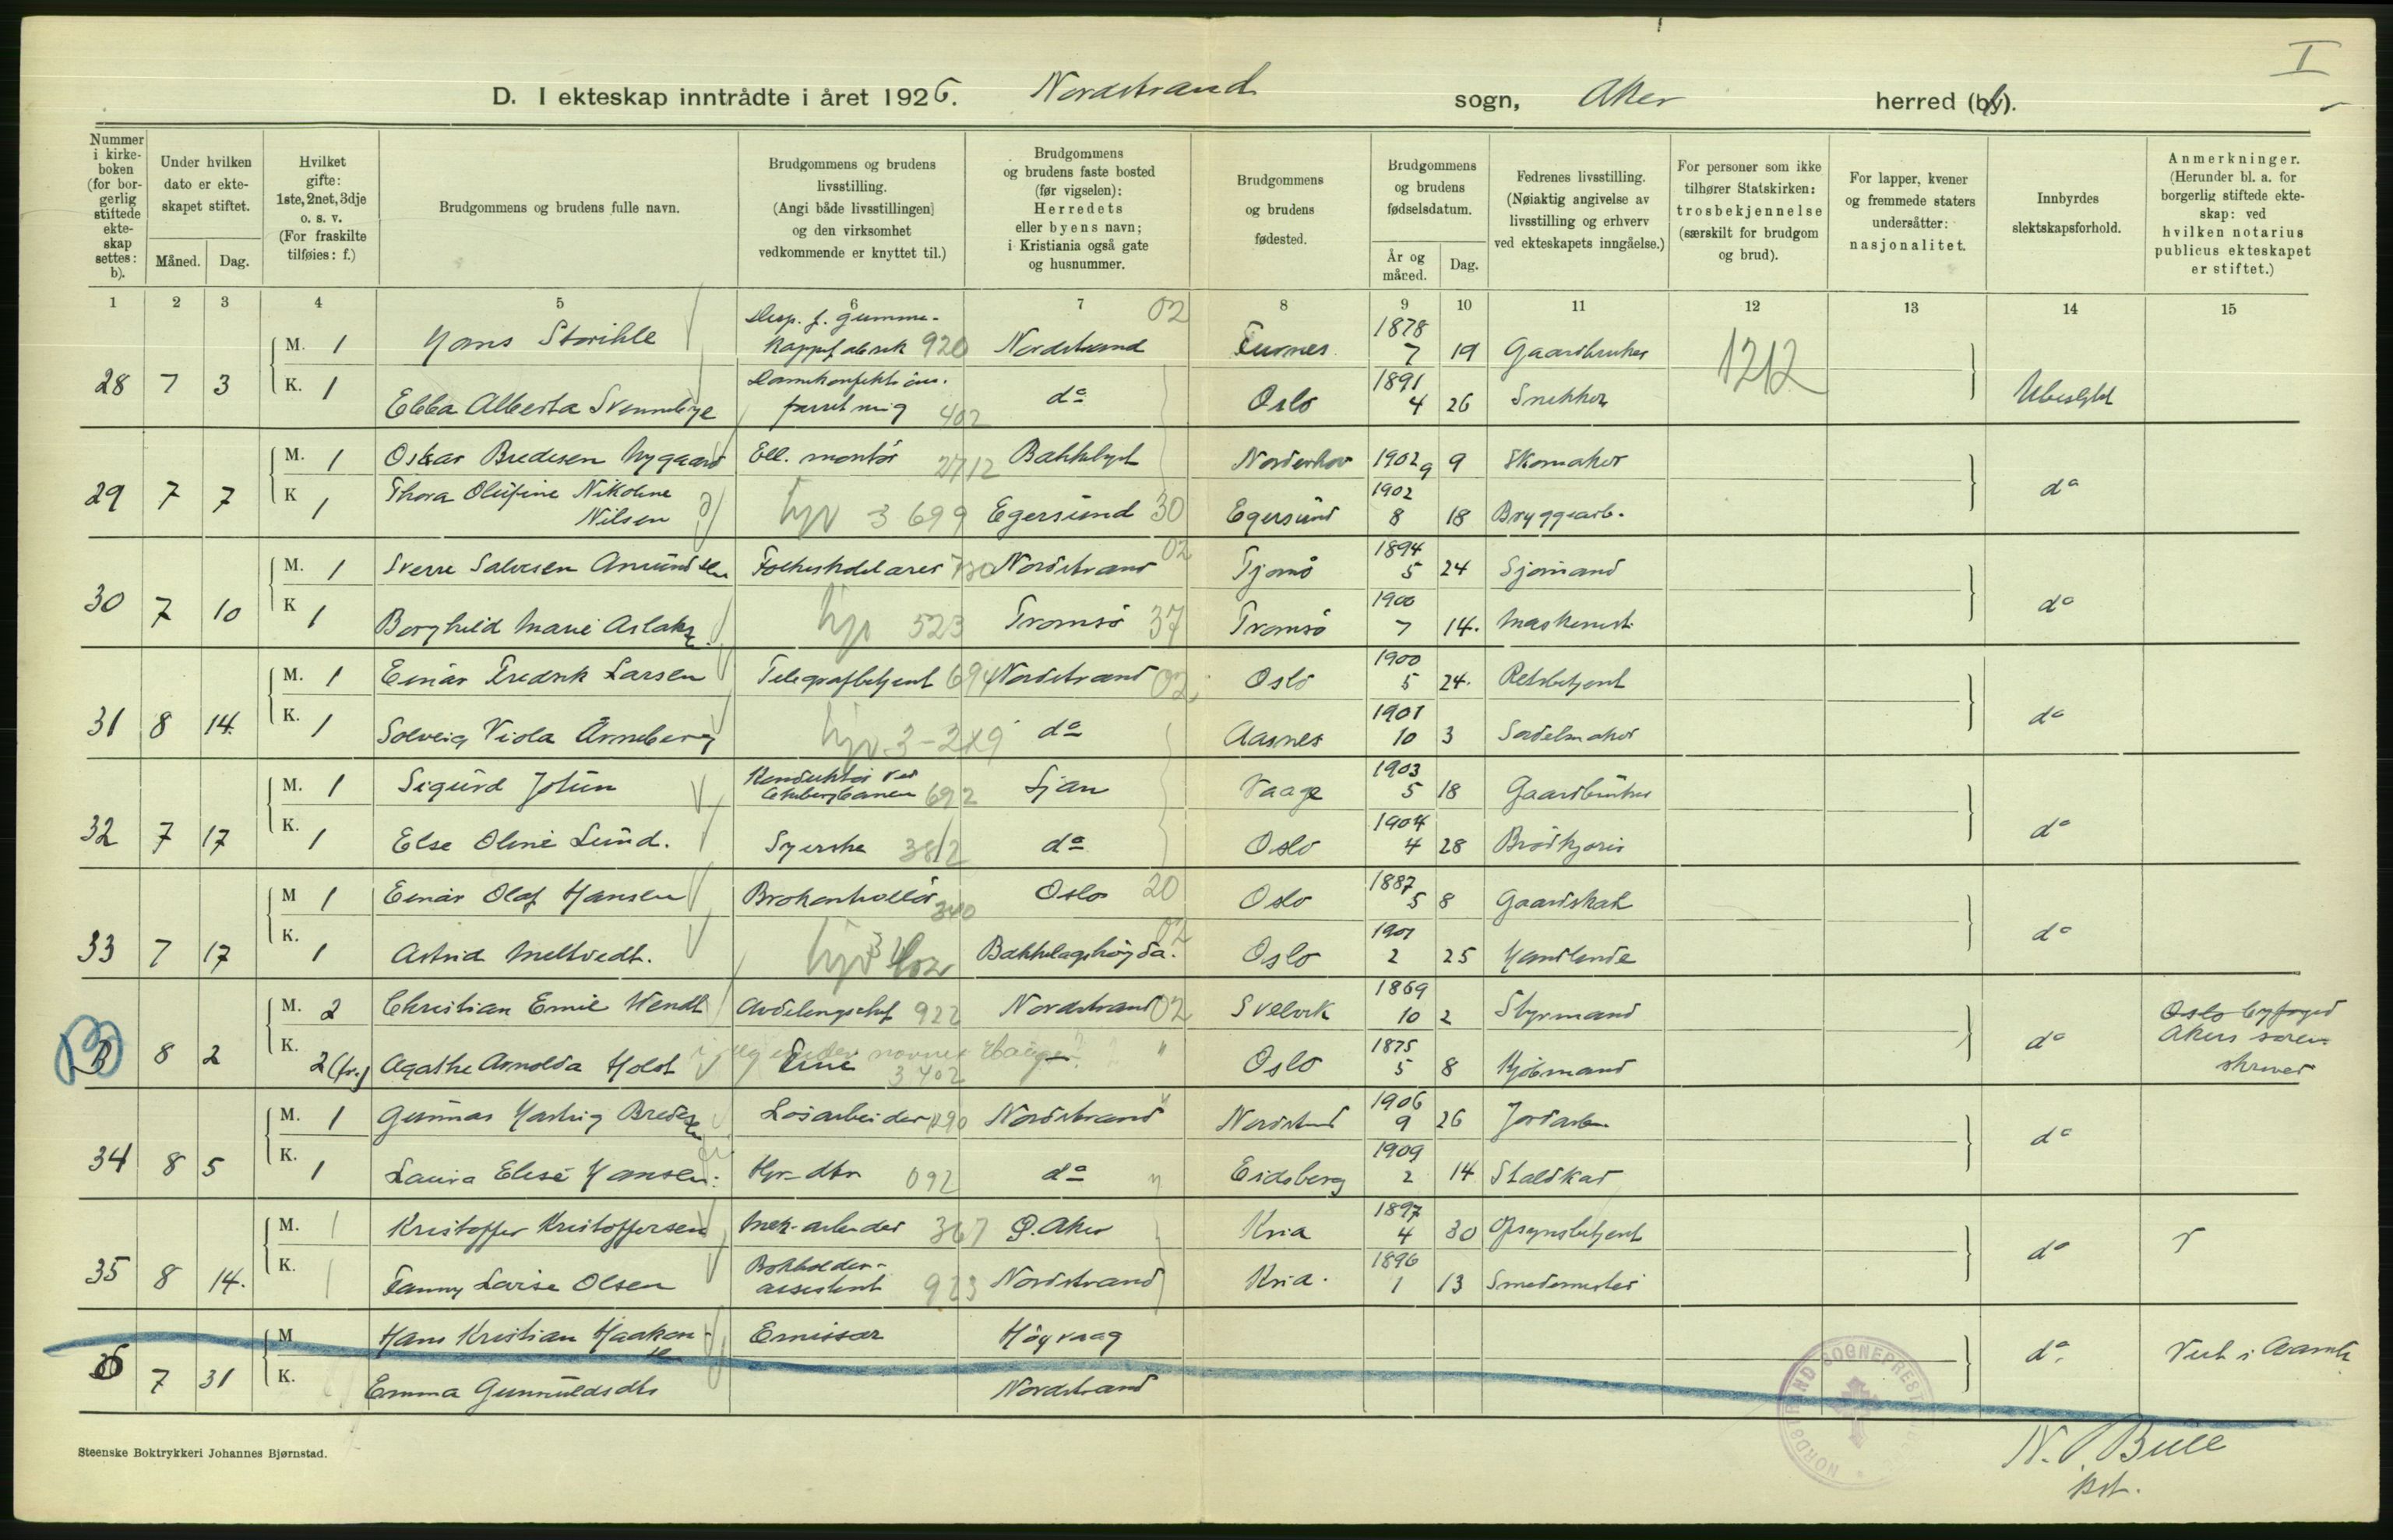 I
D. I ekteskap inntrådte i året 1926. Nordstrand sogn, Aker herred (by).
Nummer i kirkeboken (for borgerlig stiftede ekteskap settes: b).
Under hvilken dato er ekteskapet stiftet.
Måned. Dag.
Hvilket gifte: 1ste, 2net, 3dje o. s. v. (For fraskilte tilføies: f.)
Brudgommens og brudens fulle navn.
Brudgommens og brudens livsstilling. (Angi både livsstillingen og den virksomhet vedkommende er knyttet til.)
Brudgommens og brudens faste bosted (før vigselen): Herredets eller byens navn; i Kristiania også gate og husnummer.
Brudgommens og brudens fødested.
Brudgommens og brudens fødselsdatum.
År og måned. Dag.
Fedrenes livsstilling. (Nøiaktig angivelse av livsstilling og erhverv ved ekteskapets inngåelse.)
For personer som ikke tilhører Statskirken: trosbekjennelse (særskilt for brudgom og brud).
For lapper, kvener og fremmede staters undersåtter: nasjonalitet.
Innbyrdes slektskapsforhold.
Anmerkninger. (Herunder bl. a. for borgerlig stiftede ekteskap: ved hvilken notarius publicus ekteskapet er stiftet.)
1 2 3 4 5 6 7 8 9 10 11 12 13 14 15
02
28 7 3 M. 1 Hans Storihle 920 Nordstrand Furnes 1878 7 19 Gaardbruker 1212
K. 1 Ebba Alberta Svenneby 402 do Oslo 1891 4 26 Snekker Ubeslgtet
29 7 7 M. 1 Oskar Bredesen Nygaard Ell. montør 2712 Bækkelaget Norderhov 1902 9 9 Skomaker do
K 1 Thora Olufine Nikoline Nilsen hjv 3 699 Egersund 30 Egersund 1902 8 18 Bryggearb.
30 7 10 M. 1 Sverre Salvesen Amundsen Folkeskolelærer 730 Nordstrand 02 Tjømø 1894 5 24 Sjømand do
K 1 Borghild Marie Aslaksen hjv 523 Tromsø 37 Tromsø 1900 7 14. Maskinist
31 8 14. M. 1 Einar Fredrik Larsen Telegrafbetjent 694 Nordstrand 02 Oslo 1900 5 24. Retsbetjent do
K. 1 Solveig Viola Arneberg hjv. 3-219 do Aasnes 1901 10 3 Sadelmaker
32 7 17 M. 1 Sigurd Jotun Konduktør ved Ekebergbanen 692 Ljan Vaage 1903 5 18 Gaardbruker do
K. 1 Else Oline Lund. Syerske 3812 do Oslo 1904 4 28 Brødkjører
33 7 17 M 1 Einar Olaf Hansen 340 Oslo 20 Oslo 1887 5 8 Gaardskar do
K. 1 Astrid Meltvedt. hjv 3 402 Bækkelagshøgda. 02 Oslo 1901 2 25 Handlende
B 8 2 M. 2 Christian Emil Wendt Avdelingschef 922 Nordstrand 02 Svelvik 1869 10 2 Styrmand do Oslo byfoged
K. 2 (fr.) Agathe Arnolda Holst Frue 3 402 " Oslo 1875 5 8 Kjøbmand Akers sorenskriver
34 8 5 M. 1 Gunnar Hartvig Bredesen Løsarbeider 1290 Nordstrand " Nordstrand 1906 9 26 Jordarb. do
K. 1 Laura Elise Hansen. Hjv. dtr 092 do " Eidsberg 1909 2 14 Staldkar
35 8 14. M. 1 Kristoffer Kristoffersen Mek. arbeider 367 Ø. Aker Kria 1897 4 30 Opsynsbetjent do
K. 1 Fanny Lovise Olsen Bokholder-assistent 923 Nordstrand Kria. 1896 1 13 Smedemester
36 7 31 M Hans Kristian Haakonsen Emissær Høgvaag do. Viet i Avansk
K. Emma Gunnuldsdtr Nordstrand
NORDSTRAND SOGNEPREST
Steenske Boktrykkeri Johannes Bjørnstad.
N. Bull
pst.